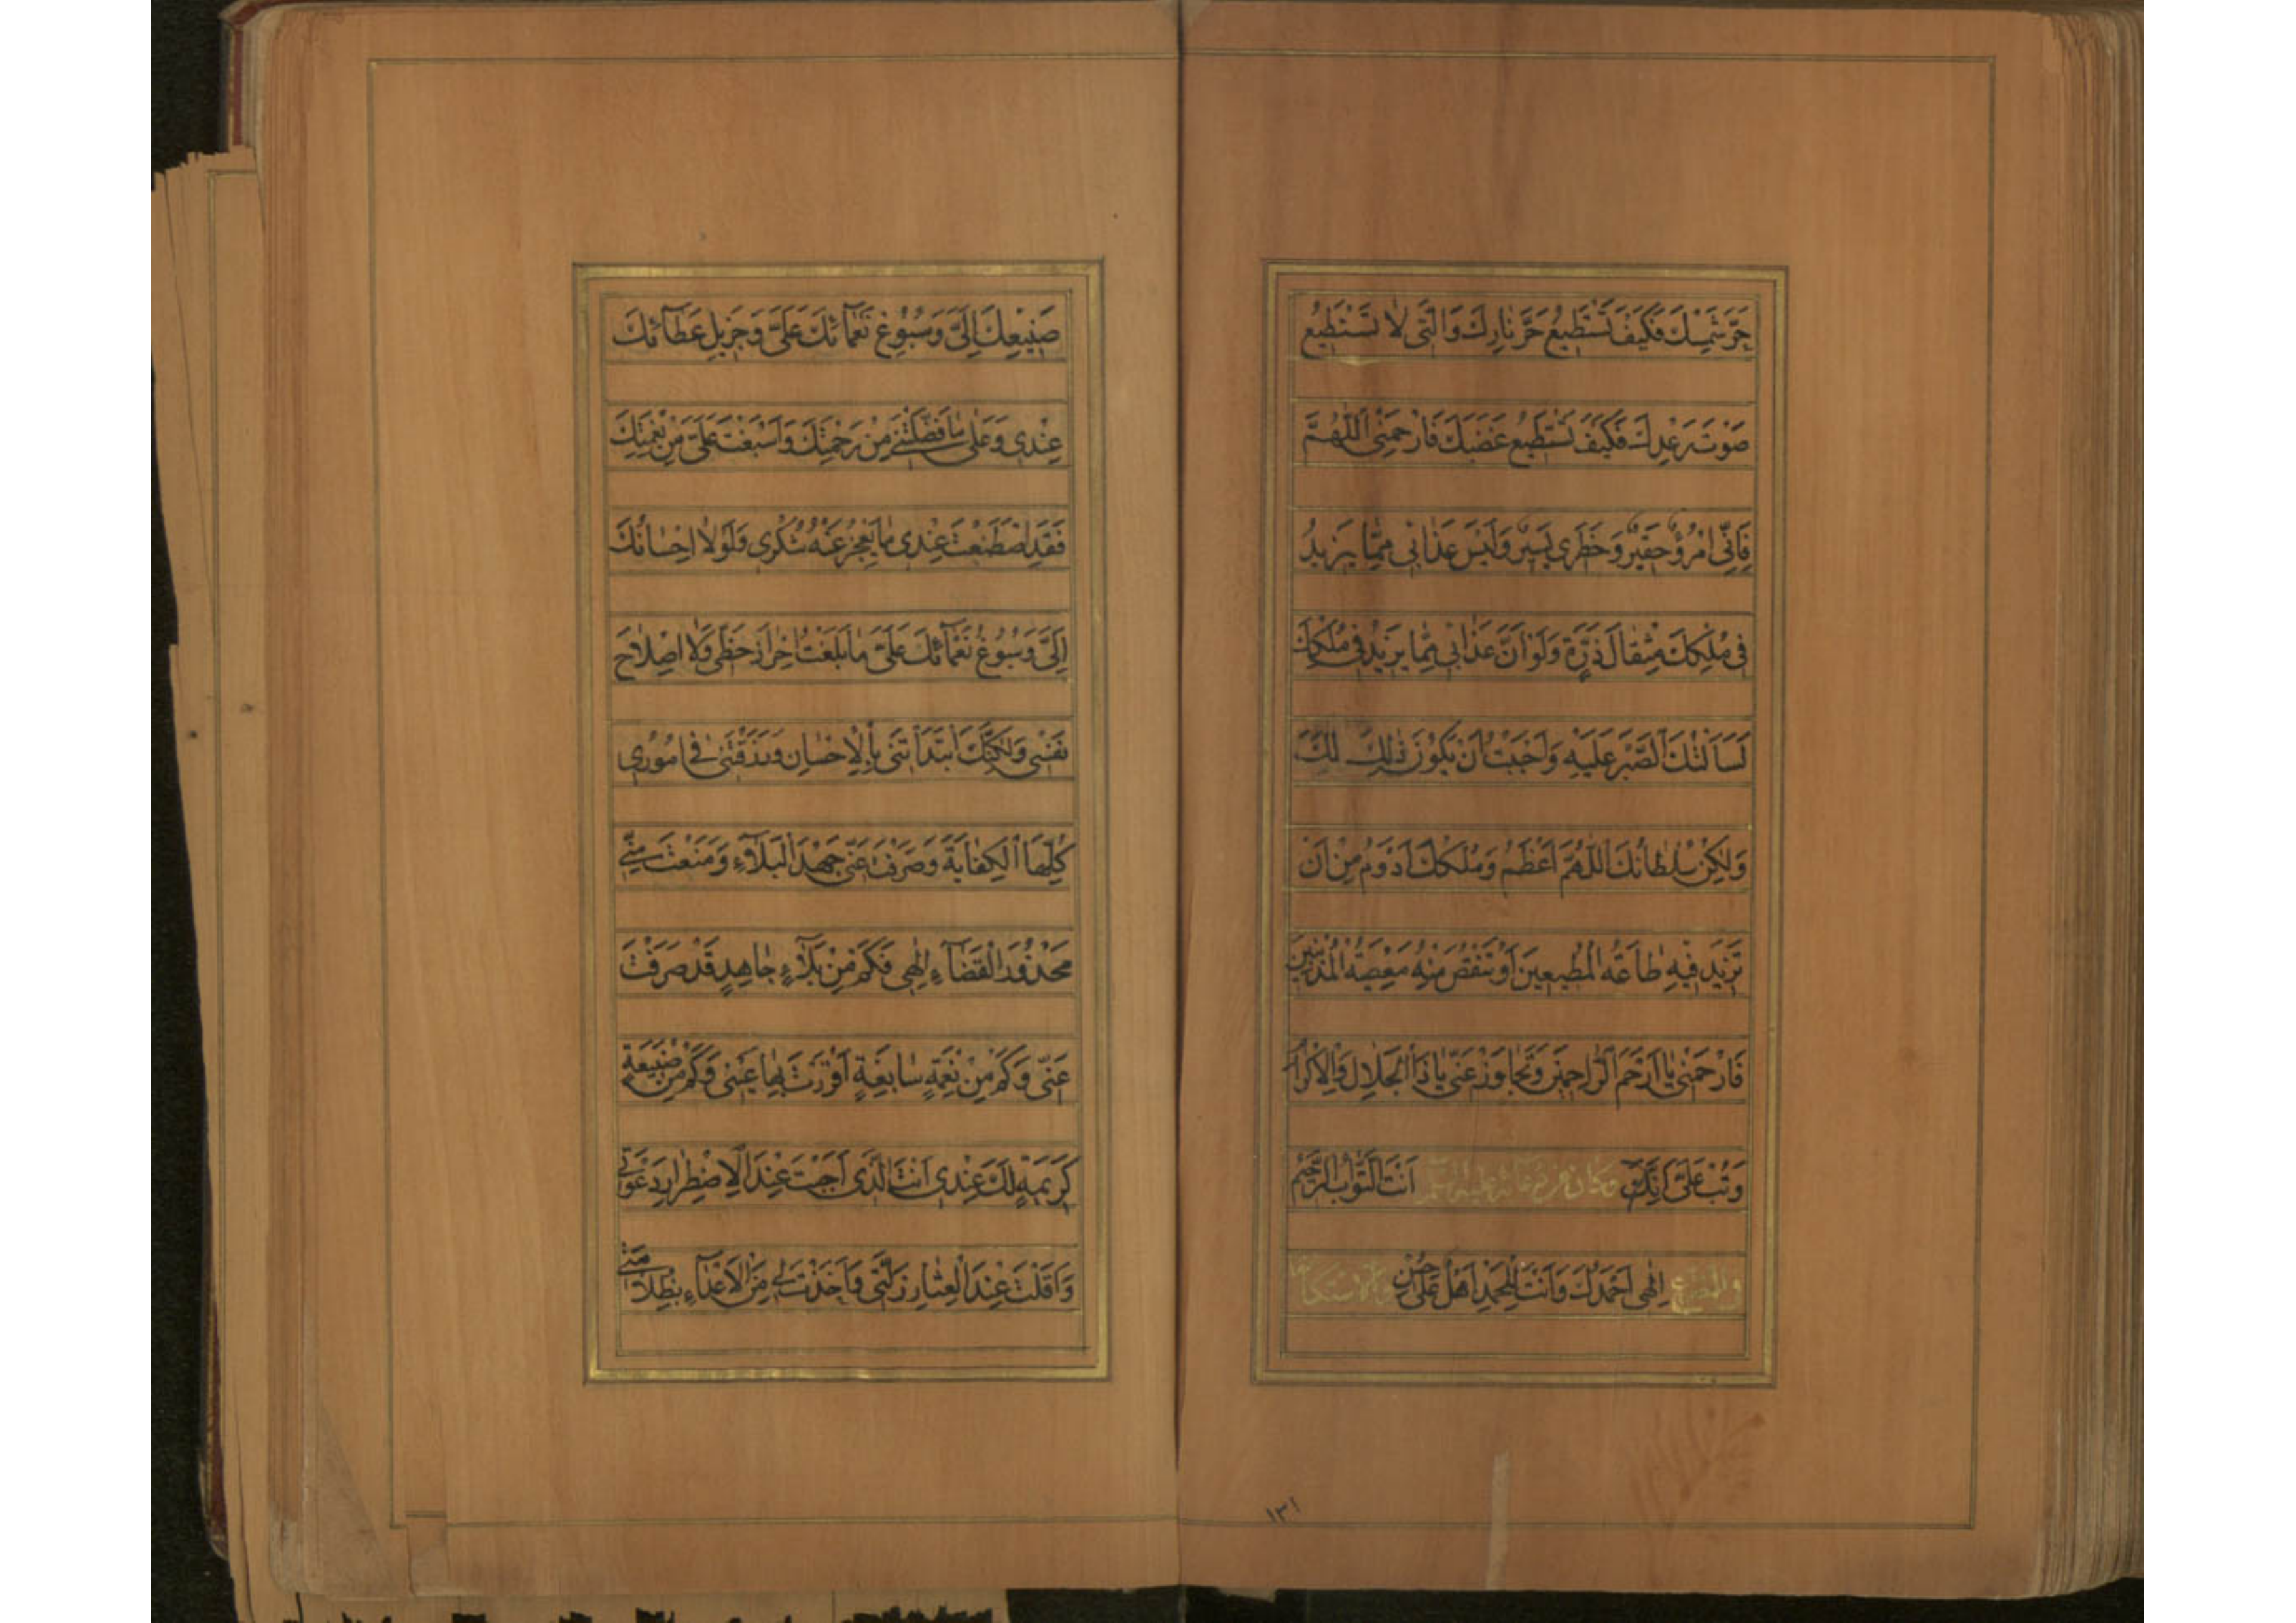 حَرَّ شَمْسِكَ فَكَيْفَ تَسْتَطيعُ حَرَّ نارِكَ وَالَّتي لا تَسْتَطيعُ
صَوْتَ رَعْدِكَ فَكَيْفَ تَسْتَطيعُ غَضَبَكَ فَارْحَمْنِي اللّٰهُمَّ
فَاِنِّي امْرُؤٌ حَقيرٌ وَخَطَري يَسيرٌ وَلَيْسَ عَذابي مِمّا يَزيدُ
في مُلْكِكَ مِثْقالَ ذَرَّةٍ وَلَوْ اَنَّ عَذابي مِمّا يَزيدُ في مُلْكِكَ
لَسَاَلْتُكَ الصَّبْرَ عَلَيْهِ وَاَحْبَبْتُ اَنْ يَكُونَ ذٰلِكَ لَكَ
وَلٰكِنْ سُلْطانُكَ اللّٰهُمَّ اَعْظَمُ وَمُلْكُكَ اَدْوَمُ مِنْ اَنْ
تَزيدَ فيهِ طاعَةُ الْمُطيعينَ اَوْ تَنْقُصَ مِنْهُ مَعْصِيَةُ الْمُذْنِبينَ
فَارْحَمْني يا اَرْحَمَ الرّاحِمينَ وَتَجاوَزْ عَنّي يا ذَا الْجَلالِ وَالْاِكْرامِ
وَتُبْ عَلَيَّ اِنَّكَ اَنْتَ التَّوّابُ الرَّحيمُ وكان من دعائه عليه السلم
في التضرع والاستكانة اِلٰهي اَحْمَدُكَ وَاَنْتَ لِلْحَمْدِ اَهْلٌ عَلىٰ حُسْنِ
١٣١
صَنيعِكَ اِلَيَّ وَسُبُوغِ نَعْمآئِكَ عَلَيَّ وَجَزيلِ عَطآئِكَ
عِنْدي وَعَلىٰ ما فَضَّلْتَني مِنْ رَحْمَتِكَ وَاَسْبَغْتَ عَلَيَّ مِنْ نِعْمَتِكَ
فَقَدِ اصْطَنَعْتَ عِنْدي ما يَعْجِزُ عَنْهُ شُكْري وَلَوْلا اِحْسانُكَ
اِلَيَّ وَسُبُوغُ نَعْمآئِكَ عَلَيَّ ما بَلَغْتُ اِحْرازَ حَظّي وَلا اِصْلاحَ
نَفْسي وَلٰكِنَّكَ ابْتَدَاْتَني بِالْاِحْسانِ وَرَزَقْتَني في اُمُوري
كُلِّهَا الْكِفايَةَ وَصَرَفْتَ عَنّي جَهْدَ الْبَلآءِ وَمَنَعْتَ مِنّي
مَحْذُورَ الْقَضآءِ اِلٰهي فَكَمْ مِنْ بَلآءٍ جاهِدٍ قَدْ صَرَفْتَ
عَنّي وَكَمْ مِنْ نِعْمَةٍ سابِغَةٍ اَقْرَرْتَ بِها عَيْني وَكَمْ مِنْ صَنيعَةٍ
كَريمَةٍ لَكَ عِنْدي اَنْتَ الَّذي اَجَبْتَ عِنْدَ الْاِضْطِرارِ دَعْوَتي
وَاَقَلْتَ عِنْدَ الْعِثارِ زَلَّتي وَاَخَذْتَ لي مِنَ الْاَعْدآءِ بِظُلامَتي